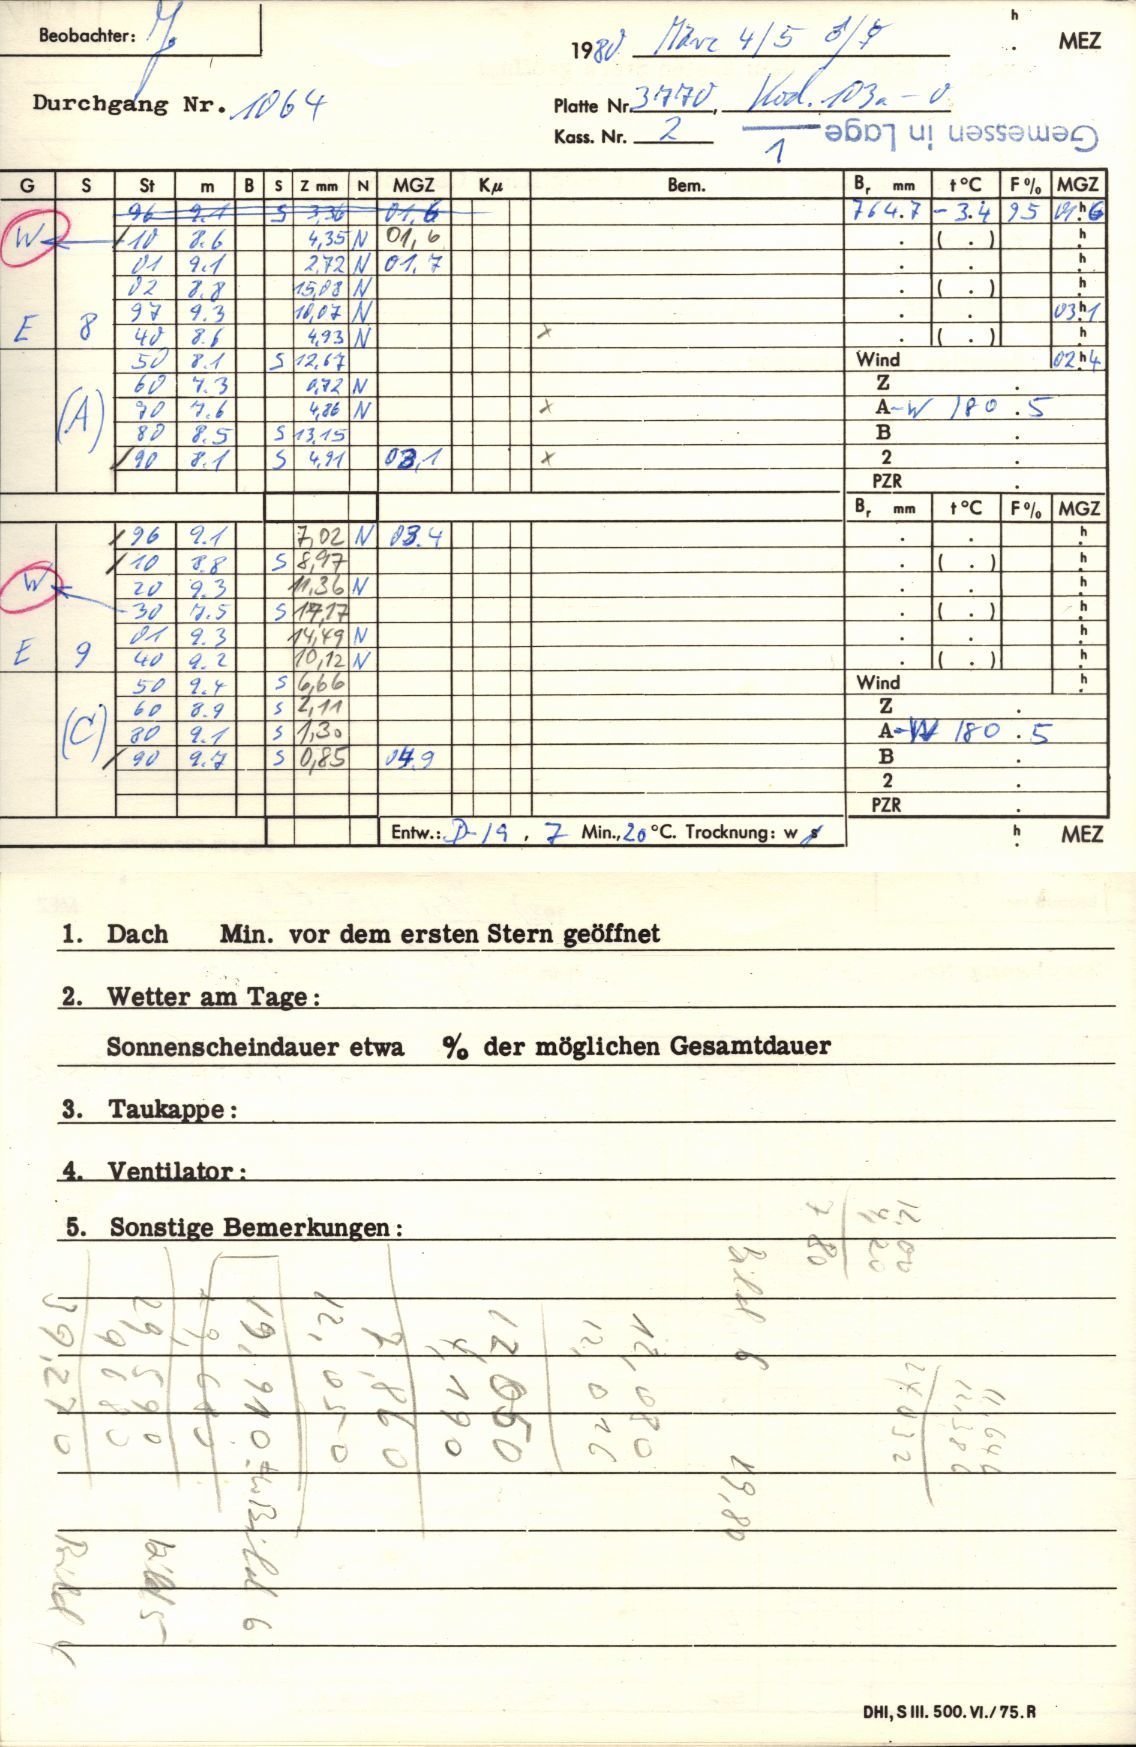 Beobachter:
1980 März 4/5 8/9 h MEZ
Durchgang Nr. 1064
Platte Nr. 3770, Kod. 103a-0
Kass. Nr. 2
Gemessen in Lage 1
G S St m B S Z mm N MGZ Kµ Bem. Br mm t °C F % MGZ
96 9.1 S 3,36 01,6 764.7 -3.4 95 01h6
W 10 8.6 4,35 N 01,6 . ( . ) h
01 9.1 2,72 N 01.7 . . h
02 8.8 15,08 N . ( . ) h
97 9.3 10,07 N . . 03h1
E 8 40 8.6 4,93 N x . ( . ) h
50 8.1 S 12,67 Wind 02h4
60 7.3 0,72 N Z .
(A) 70 7.6 4,86 N x A-W 180 . 5
80 8.5 S 13,15 B .
90 8.1 S 4,91 03,1 x 2 .
PZR .
Br mm t °C F % MGZ
96 9.1 7,02 N 03.4 . . h
10 8.8 S 8,97 . ( . ) h
W 20 9.3 11,36 N . . h
30 7.5 S 17,17 . ( . ) h
01 9.3 14,49 N . . h
E 9 40 9.2 10,12 N . ( . ) h
50 9.4 S 6,66 Wind h
60 8.9 S 2,11 Z .
(C) 80 9.1 S 1,30 A-W 180 . 5
90 9.7 S 0,85 04.9 B .
2 .
PZR .
Entw.: D-19, 7 Min., 20 °C. Trocknung: w s h MEZ
1. Dach Min. vor dem ersten Stern geöffnet
2. Wetter am Tage:
Sonnenscheindauer etwa % der möglichen Gesamtdauer
3. Taukappe:
4. Ventilator:
5. Sonstige Bemerkungen:
12,00
4,20
7 80
Bild 6 19,80
11,646
12,386
24,032
12,080
12,016
12050
4,190
7,860
12,050
19,910 Bild 6
29,590
9680
39,270
Bild 5
DHI, S III. 500. VI./75. R